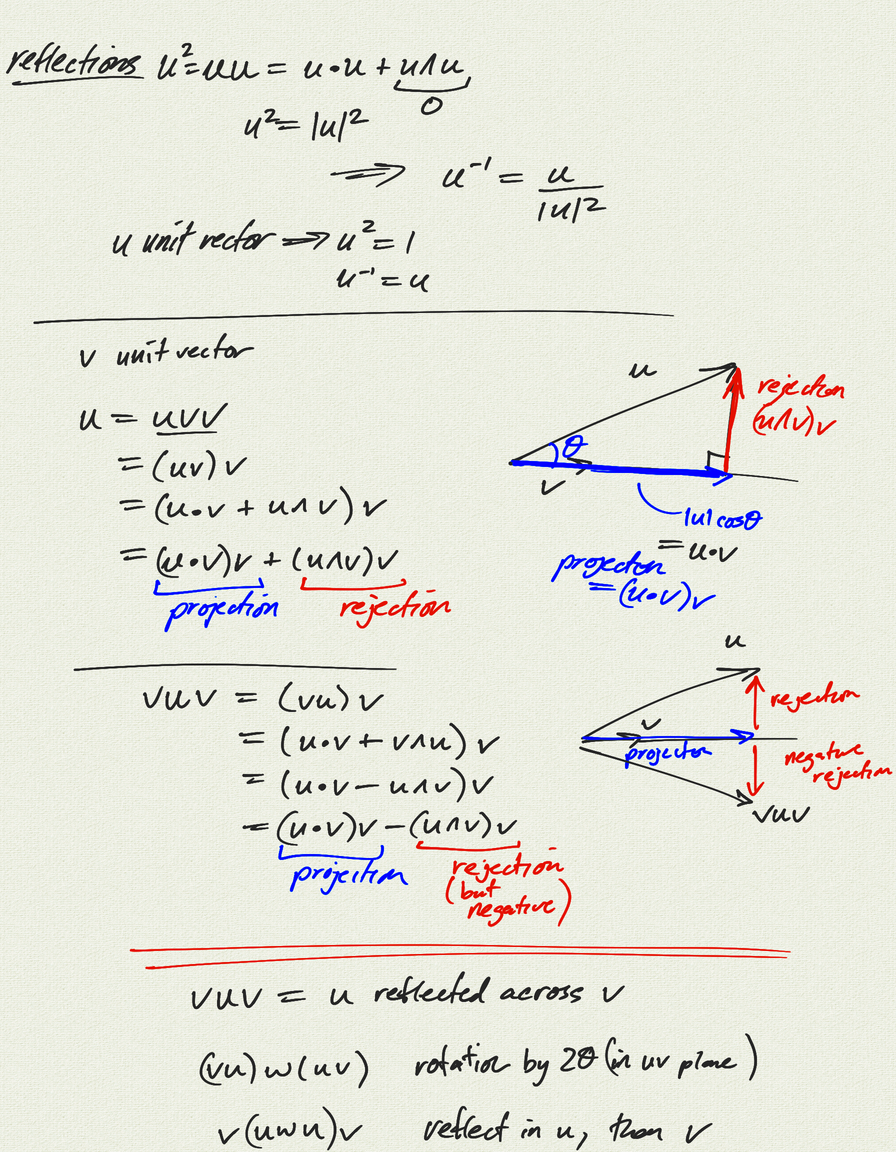 reflections u²=uu = u·u + u∧u
0
u²= |u|²
⟹ u⁻¹ = u / |u|²
u unit vector ⟹ u² = 1
u⁻¹ = u
v unit vector
u = uvv
= (uv)v
= (u·v + u∧v)v
= (u·v)v + (u∧v)v
projection rejection
u
rejection
(u∧v)v
θ
v
|u|cosθ
= u·v
projection
= (u·v)v
vuv = (vu)v
= (u·v + v∧u)v
= (u·v − u∧v)v
= (u·v)v − (u∧v)v
projection rejection
(but
negative)
u
rejection
v
projection
negative
rejection
vuv
vuv = u reflected across v
(vu)w(uv) rotation by 2θ (in uv plane)
v(uwu)v reflect in u, then v